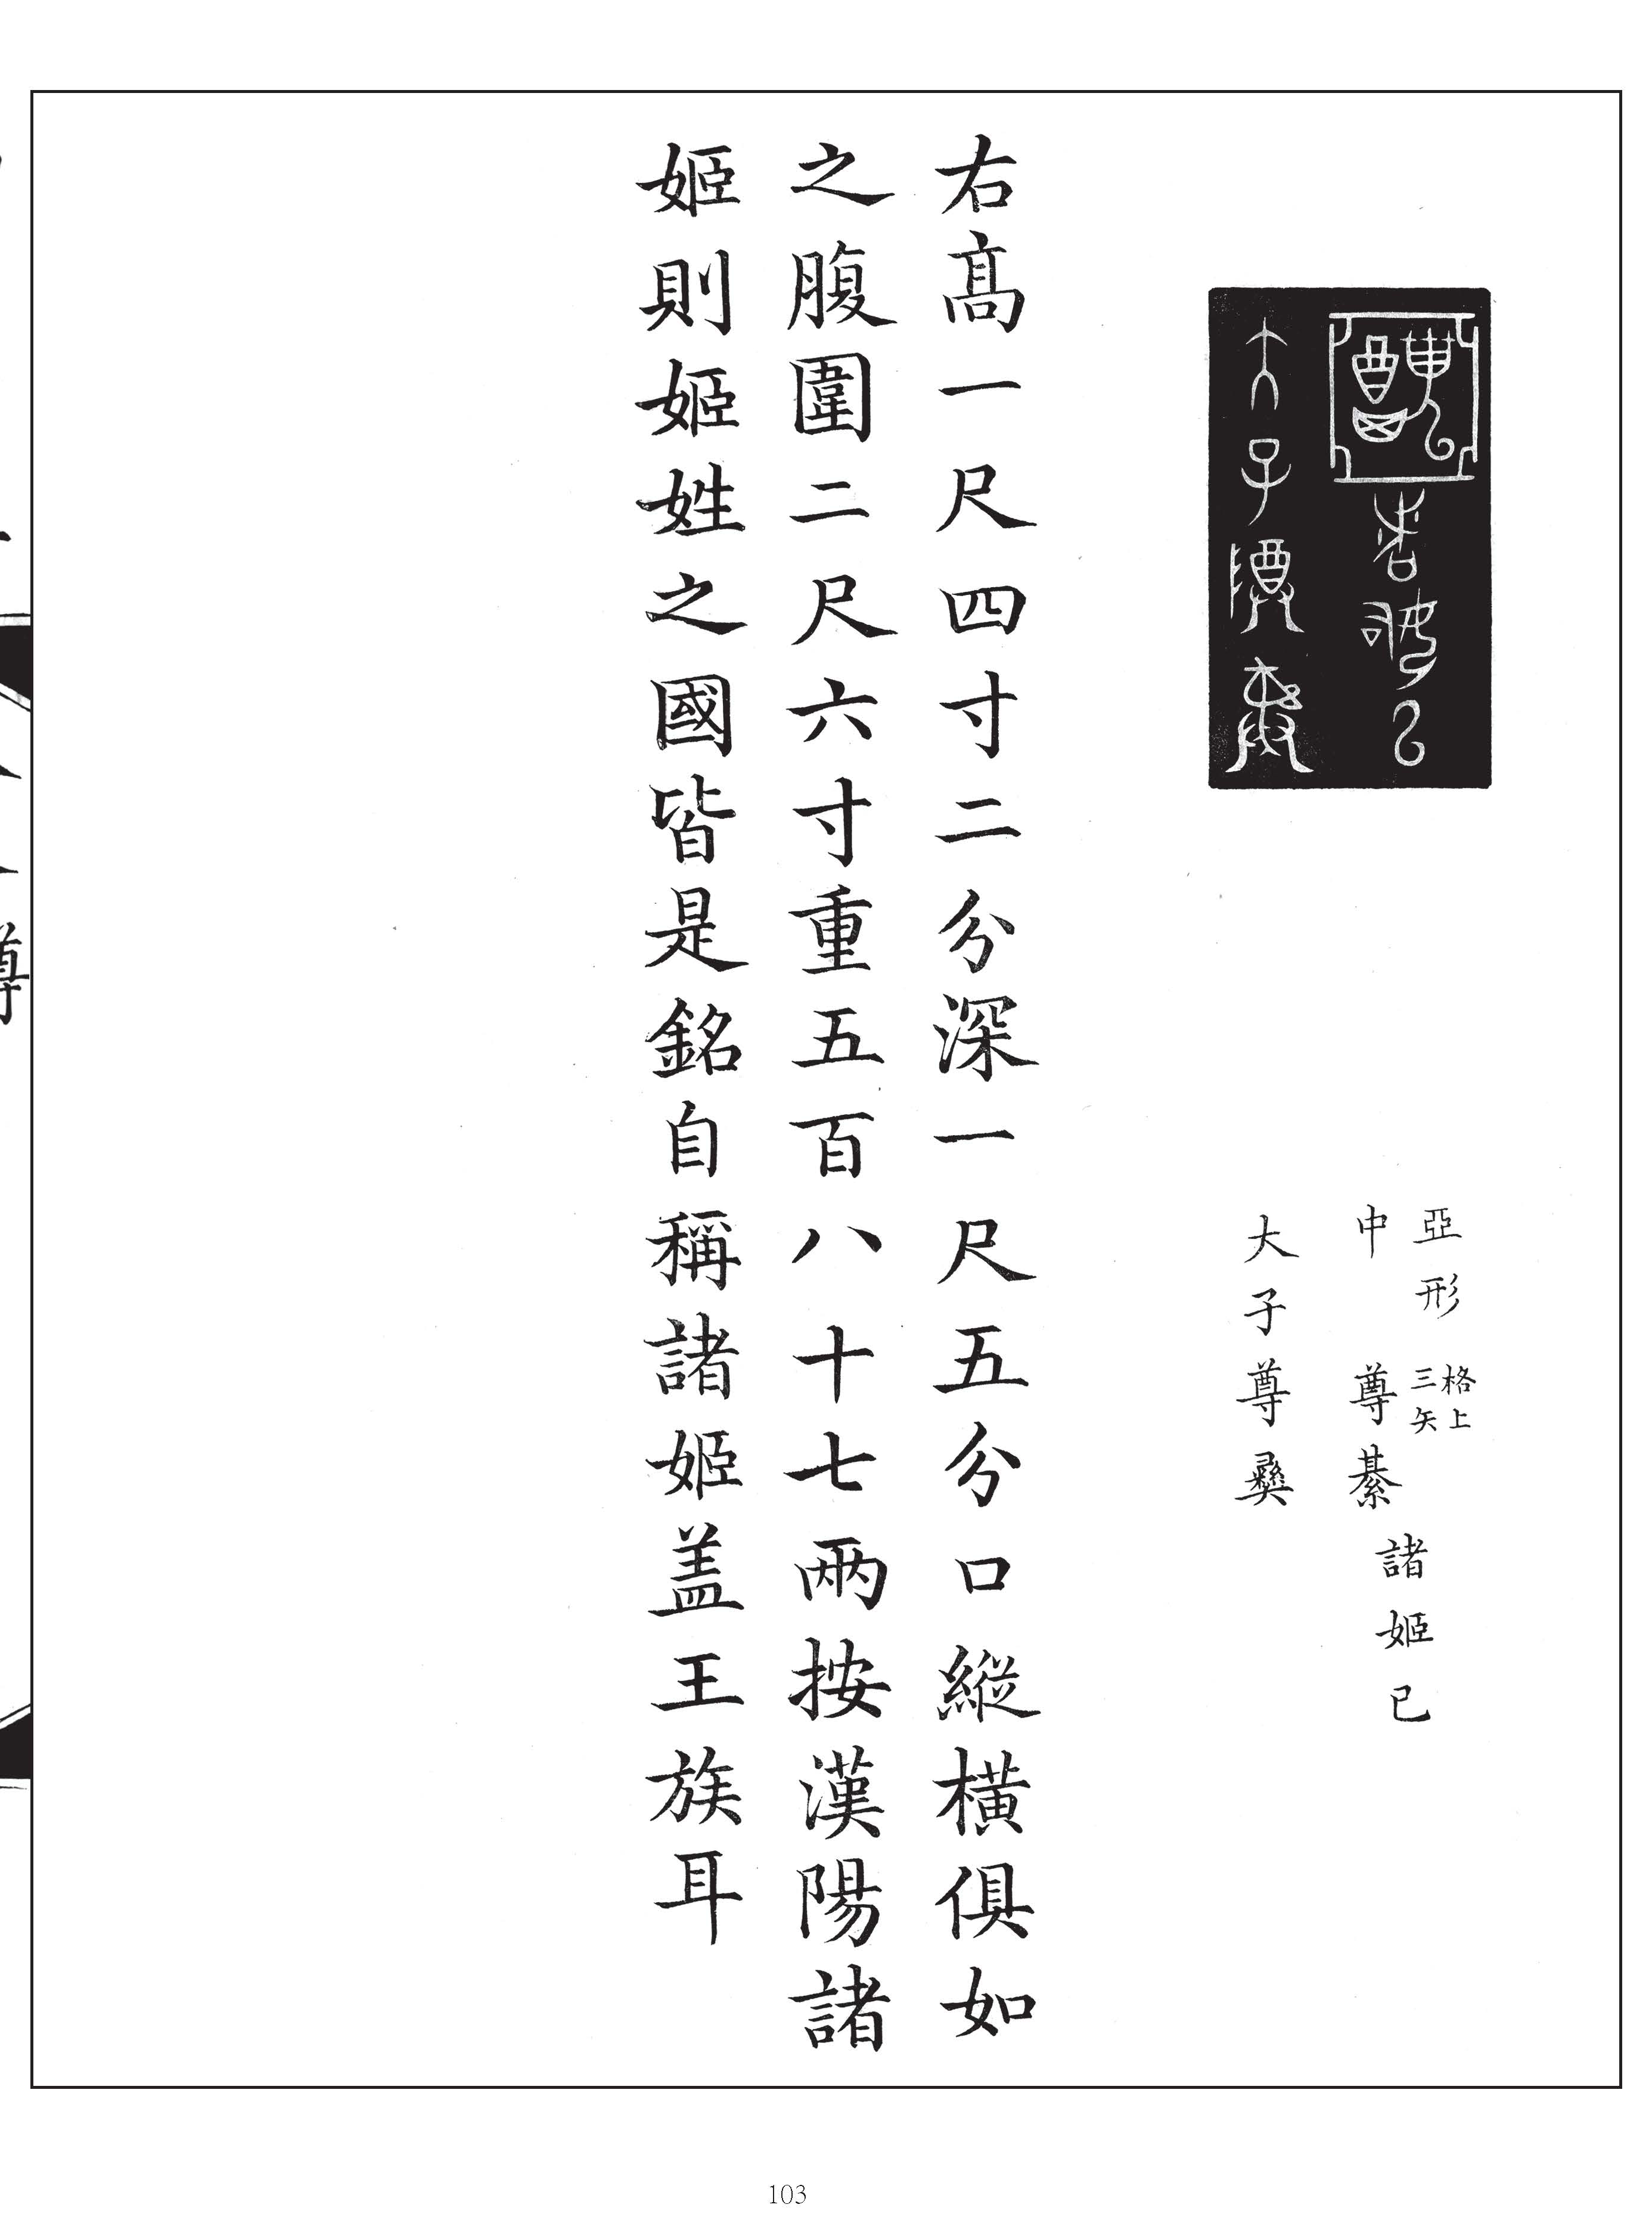 亞形格上三矢
中尊綦諸姬已
大子尊彝
右高一尺四寸二分深一尺五分口縱橫俱如
之腹圍二尺六寸重五百八十七兩按漢陽諸
姬則姬姓之國皆是銘自稱諸姬蓋王族耳
尊
103